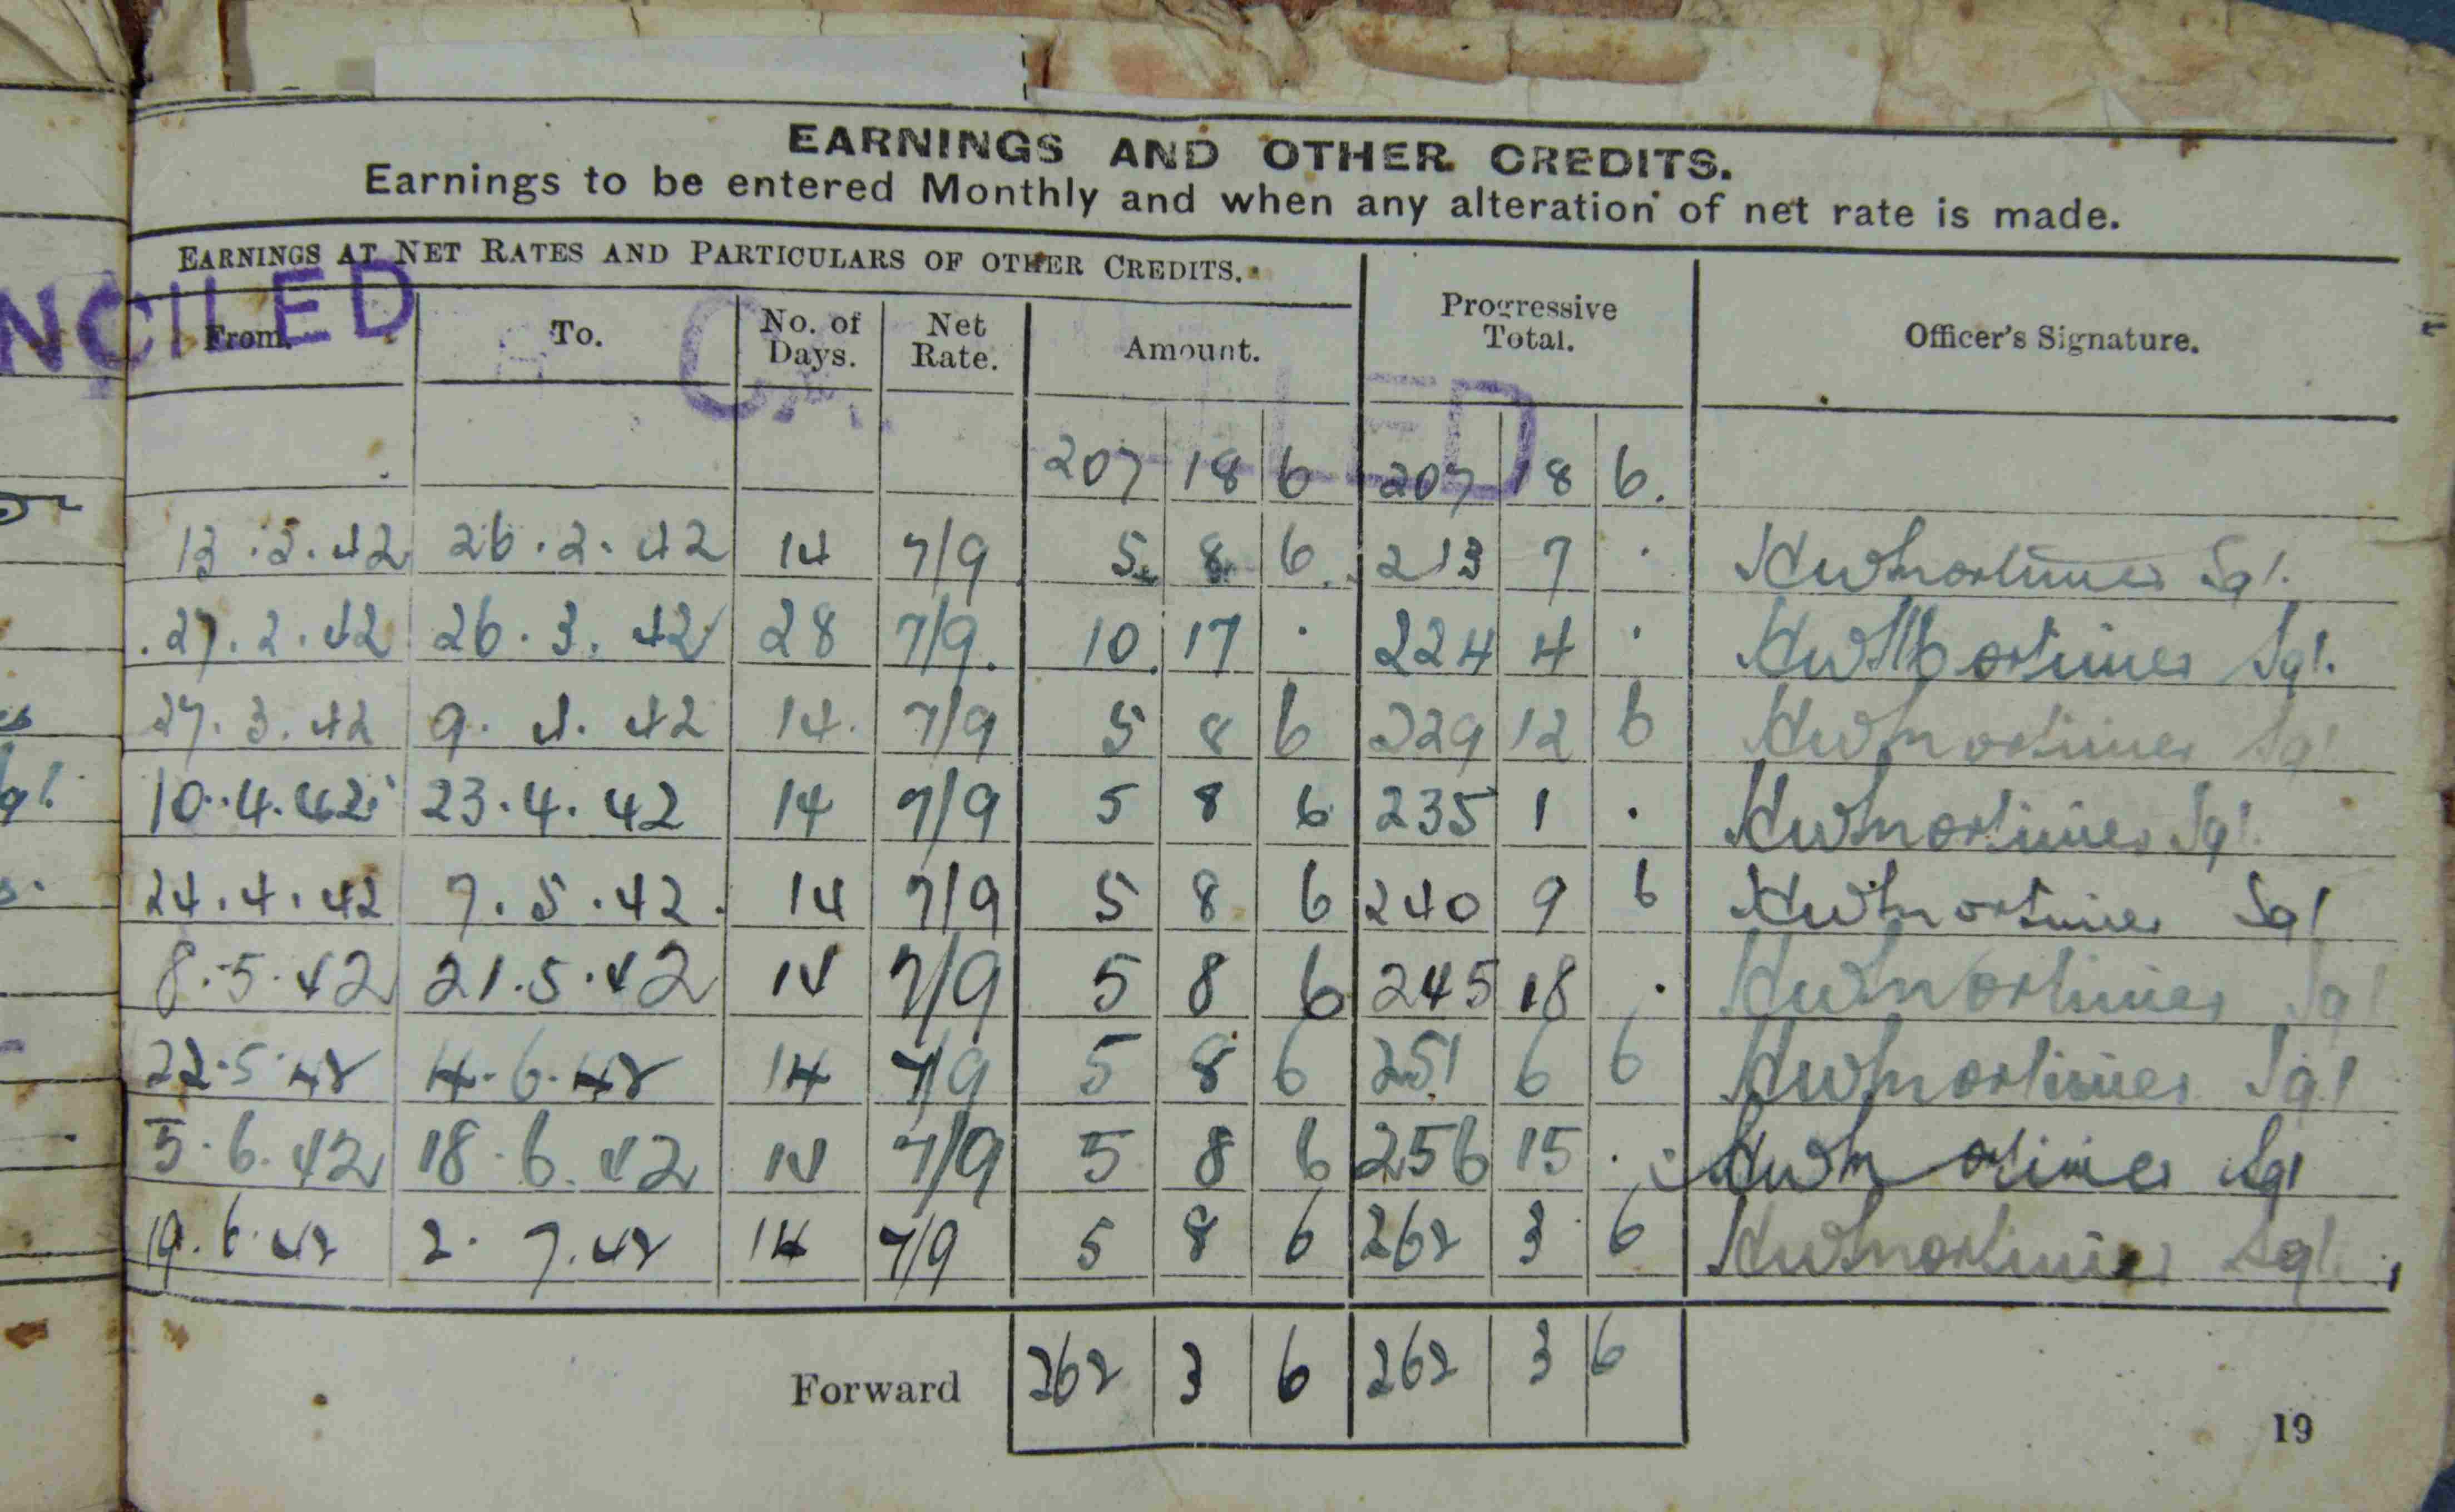 EARNINGS AND OTHER CREDITS.
Earnings to be entered Monthly and when any alteration of net rate is made.
EARNINGS AT NET RATES AND PARTICULARS OF OTHER CREDITS.
NCILED
From. To. No. of Days. Net Rate. Amount. Progressive Total. Officer's Signature.
LED
207 18 6 207 18 6.
13.2.42 26.2.42 14 7/9 5 8 6 213 7 . HWMortimer Sgt.
27.2.42 26.3.42 28 7/9. 10 17 . 224 4 . HWMortimer Sgt.
27.3.42 9.4.42 14. 7/9 5 8 6 229 12 6 HWMortimer Sgt
10.4.42 23.4.42 14 7/9 5 8 6 235 1 . HWMortimer Sgt.
24.4.42 7.5.42. 14 7/9 5 8 6 240 9 6 HWMortimer Sgt
8.5.42 21.5.42 14 7/9 5 8 6 245 18 . HWMortimer Sgt
22.5.42 4.6.42 14 7/9 5 8 6 251 6 6 HWMortimer Sgt
5.6.42 18.6.42 14 7/9 5 8 6 256 15 . HWMortimer Sgt
19.6.42 2.7.42 14 7/9 5 8 6 262 3 6 HWMortimer Sgt.
Forward 262 3 6 262 3 6
19